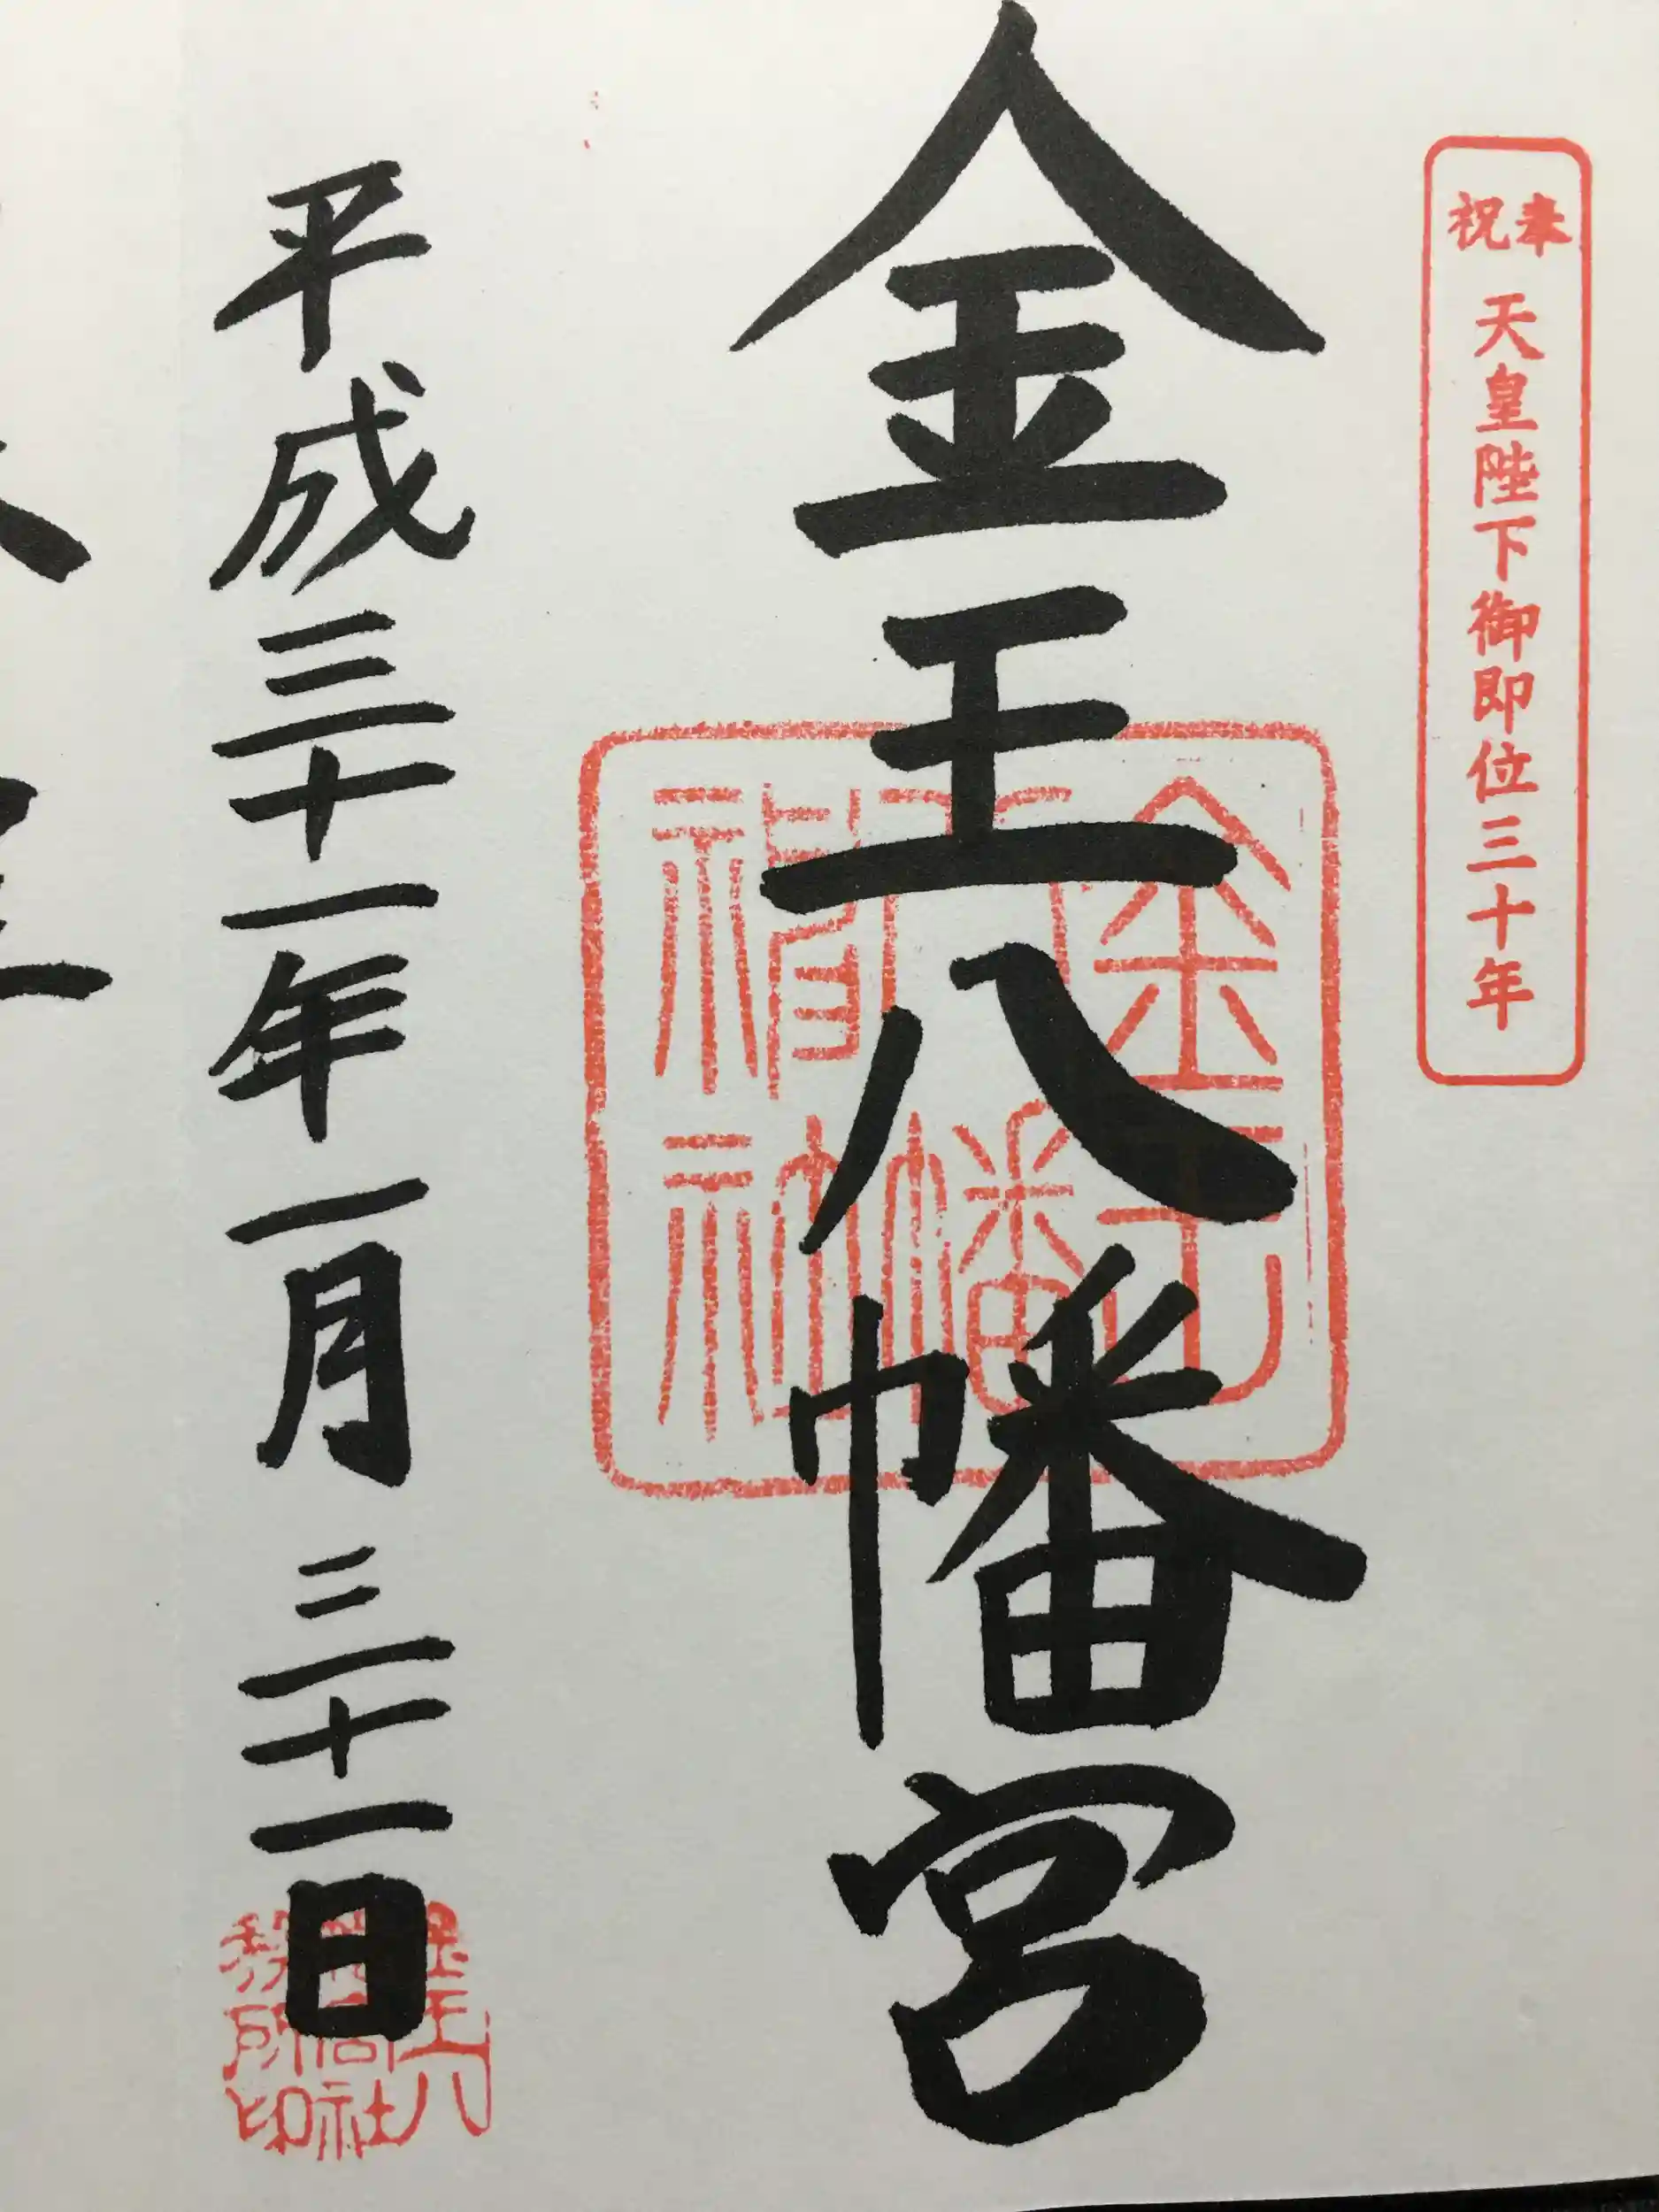 奉祝
天皇陛下御即位三十年
金王八幡宮
金王八幡神社
平成三十一年一月三十一日
金王八幡宮社務所印